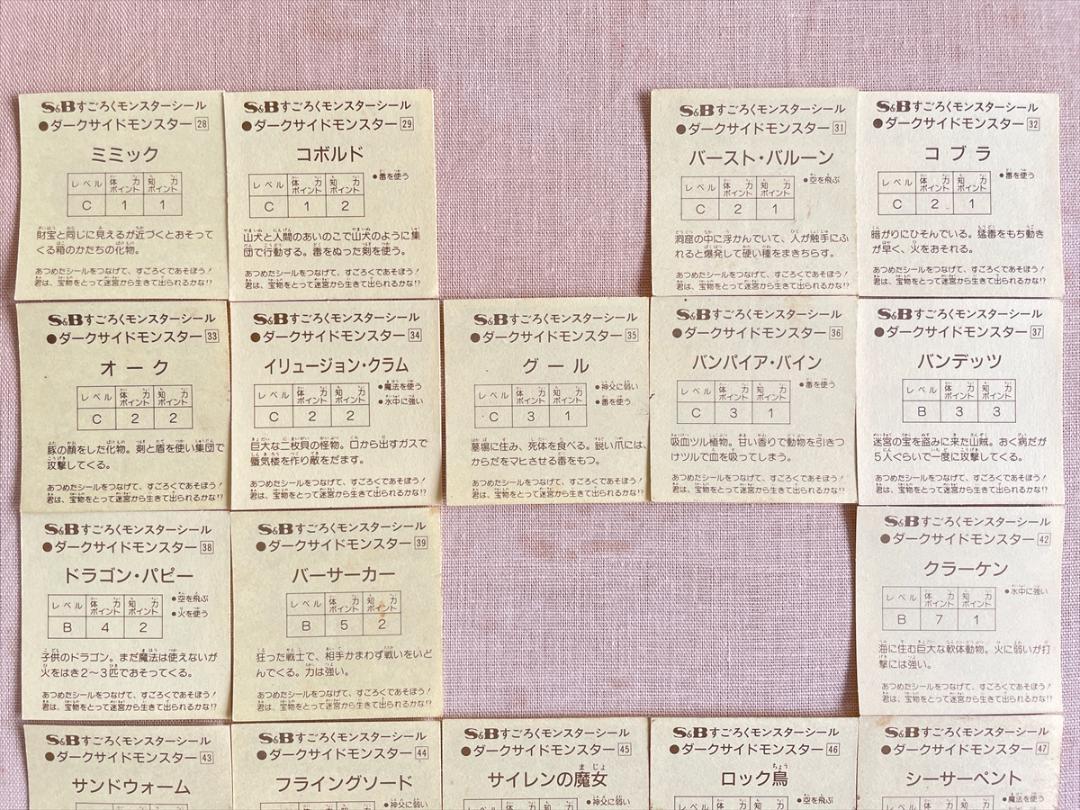 S&Bすごろくモンスターシール
●ダークサイドモンスター 28
ミミック
レベル 体力ポイント 知力ポイント
C 1 1
財宝と同じに見えるが近づくとおそって
くる箱のかたちの化物。
あつめたシールをつなげて、すごろくであそぼう!
君は、宝物をとって迷宮から生きて出られるかな!?
S&Bすごろくモンスターシール
●ダークサイドモンスター 29
コボルド
●毒を使う
レベル 体力ポイント 知力ポイント
C 1 2
山犬と人間のあいのこで山犬のように集
団で行動する。毒をぬった剣を使う。
あつめたシールをつなげて、すごろくであそぼう!
君は、宝物をとって迷宮から生きて出られるかな!?
S&Bすごろくモンスターシール
●ダークサイドモンスター 31
バースト・バルーン
●空を飛ぶ
レベル 体力ポイント 知力ポイント
C 2 1
洞窟の中に浮かんでいて、人が触手にふ
れると爆発して硬い種をまきちらす。
あつめたシールをつなげて、すごろくであそぼう!
君は、宝物をとって迷宮から生きて出られるかな!?
S&Bすごろくモンスターシール
●ダークサイドモンスター 32
コブラ
●毒を使う
レベル 体力ポイント 知力ポイント
C 2 1
暗がりにひそんでいる。猛毒をもち動き
が早く、火をおそれる。
あつめたシールをつなげて、すごろくであそぼう!
君は、宝物をとって迷宮から生きて出られるかな!?
S&Bすごろくモンスターシール
●ダークサイドモンスター 33
オーク
レベル 体力ポイント 知力ポイント
C 2 2
豚の顔をした化物。剣と盾を使い集団で
攻撃してくる。
あつめたシールをつなげて、すごろくであそぼう!
君は、宝物をとって迷宮から生きて出られるかな!?
S&Bすごろくモンスターシール
●ダークサイドモンスター 34
イリュージョン・クラム
●魔法を使う
●水中に強い
レベル 体力ポイント 知力ポイント
C 2 2
巨大な二枚貝の怪物。口から出すガスで
蜃気楼を作り敵をだます。
あつめたシールをつなげて、すごろくであそぼう!
君は、宝物をとって迷宮から生きて出られるかな!?
S&Bすごろくモンスターシール
●ダークサイドモンスター 35
グール
●神父に弱い
●毒を使う
レベル 体力ポイント 知力ポイント
C 3 1
墓場に住み、死体を食べる。鋭い爪には、
からだをマヒさせる毒をもつ。
あつめたシールをつなげて、すごろくであそぼう!
君は、宝物をとって迷宮から生きて出られるかな!?
S&Bすごろくモンスターシール
●ダークサイドモンスター 36
バンパイア・バイン
●毒を使う
レベル 体力ポイント 知力ポイント
C 3 1
吸血ツル植物。甘い香りで動物を引きつ
けツルで血を吸ってしまう。
あつめたシールをつなげて、すごろくであそぼう!
君は、宝物をとって迷宮から生きて出られるかな!?
S&Bすごろくモンスターシール
●ダークサイドモンスター 37
バンデッツ
レベル 体力ポイント 知力ポイント
B 3 3
迷宮の宝を盗みに来た山賊。おく病だが
5人ぐらいで一度に攻撃してくる。
あつめたシールをつなげて、すごろくであそぼう!
君は、宝物をとって迷宮から生きて出られるかな!?
S&Bすごろくモンスターシール
●ダークサイドモンスター 38
ドラゴン・パピー
●空を飛ぶ
●火を使う
レベル 体力ポイント 知力ポイント
B 4 2
子供のドラゴン。まだ魔法は使えないが
火をはき2〜3匹でおそってくる。
あつめたシールをつなげて、すごろくであそぼう!
君は、宝物をとって迷宮から生きて出られるかな!?
S&Bすごろくモンスターシール
●ダークサイドモンスター 39
バーサーカー
レベル 体力ポイント 知力ポイント
B 5 2
狂った戦士で、相手かまわず戦いをいど
んでくる。力は強い。
あつめたシールをつなげて、すごろくであそぼう!
君は、宝物をとって迷宮から生きて出られるかな!?
S&Bすごろくモンスターシール
●ダークサイドモンスター 42
クラーケン
●水中に強い
レベル 体力ポイント 知力ポイント
B 7 1
海に住む巨大な軟体動物。火に弱いが打
撃には強い。
あつめたシールをつなげて、すごろくであそぼう!
君は、宝物をとって迷宮から生きて出られるかな!?
S&Bすごろくモンスターシール
●ダークサイドモンスター 43
サンドウォーム
S&Bすごろくモンスターシール
●ダークサイドモンスター 44
フライングソード
●神父に弱い
S&Bすごろくモンスターシール
●ダークサイドモンスター 45
サイレンの魔女
●神父に弱い
S&Bすごろくモンスターシール
●ダークサイドモンスター 46
ロック鳥
●空を飛ぶ
S&Bすごろくモンスターシール
●ダークサイドモンスター 47
シーサーペント
●魔法を使う